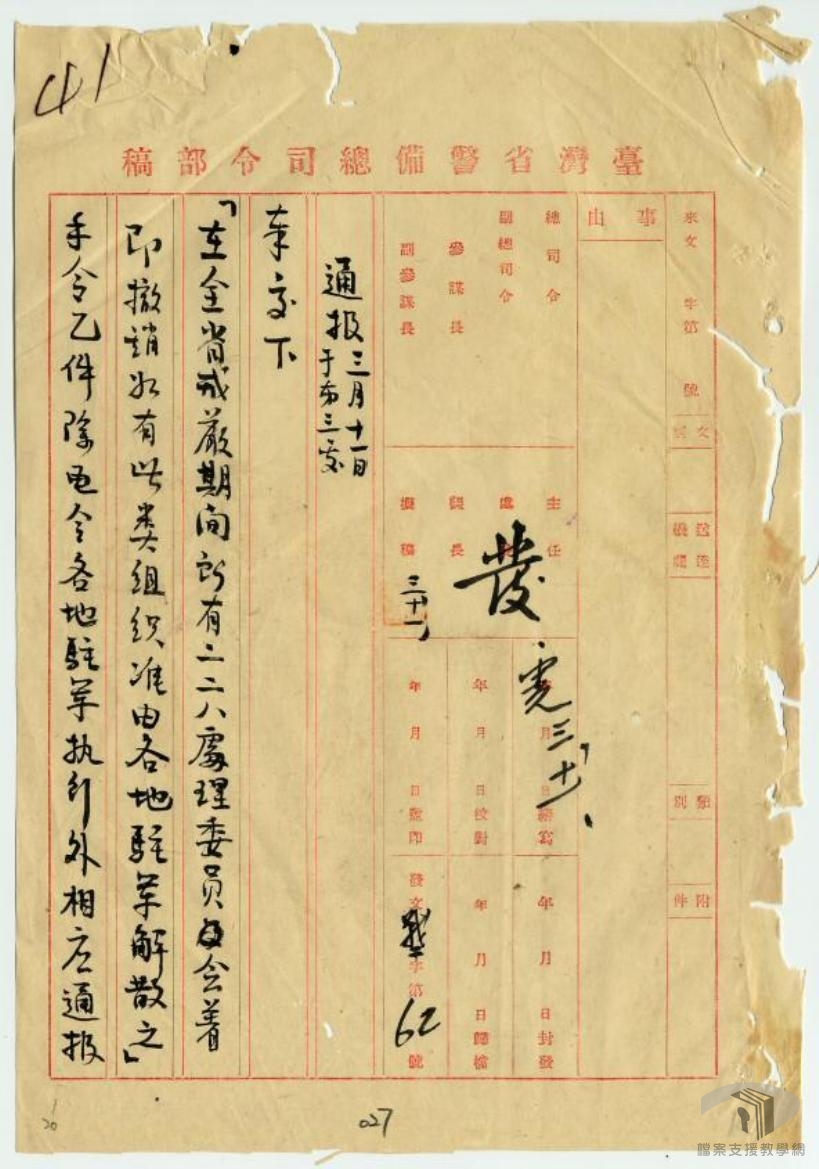 41
臺灣省警備總司令部稿
來文 字第 號
文別
送達機關
類別
附件
事由
總司令
副總司令
參謀長
副參謀長
主任
處長
課長
擬稿
發
三十一
三、十一、
年 月 日繕寫
年 月 日校對
年 月 日蓋印
年 月 日封發
年 月 日歸檔
發文 字第 62 號
通报 三月十一日
于 三处
奉交下
「在全省戒嚴期间所有二二八處理委員会着
即撤銷如有此类组织准由各地駐军解散之」
手令乙件除电令各地駐军执行外相应通报
20
027
檔案支援教學網